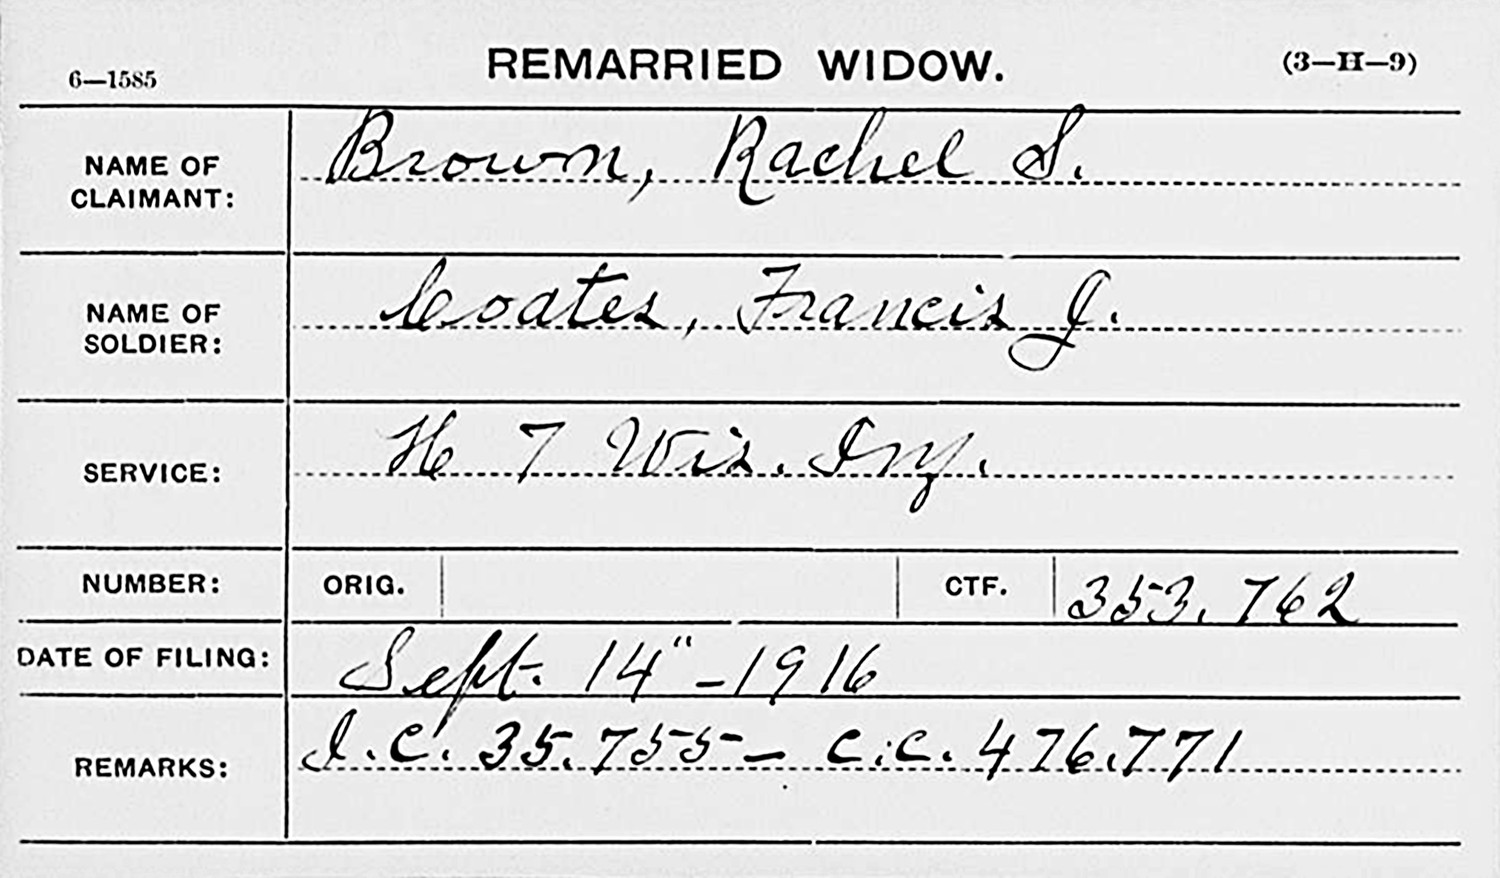 6—1585 REMARRIED WIDOW. (3—H—9)
NAME OF
CLAIMANT: Brown, Rachel S.
NAME OF
SOLDIER: Coates, Francis J.
SERVICE: H 7 Wis. Inf.
NUMBER: ORIG. CTF. 353.762
DATE OF FILING: Sept. 14" - 1916
REMARKS: I.C. 35.755 - C.C. 476.771